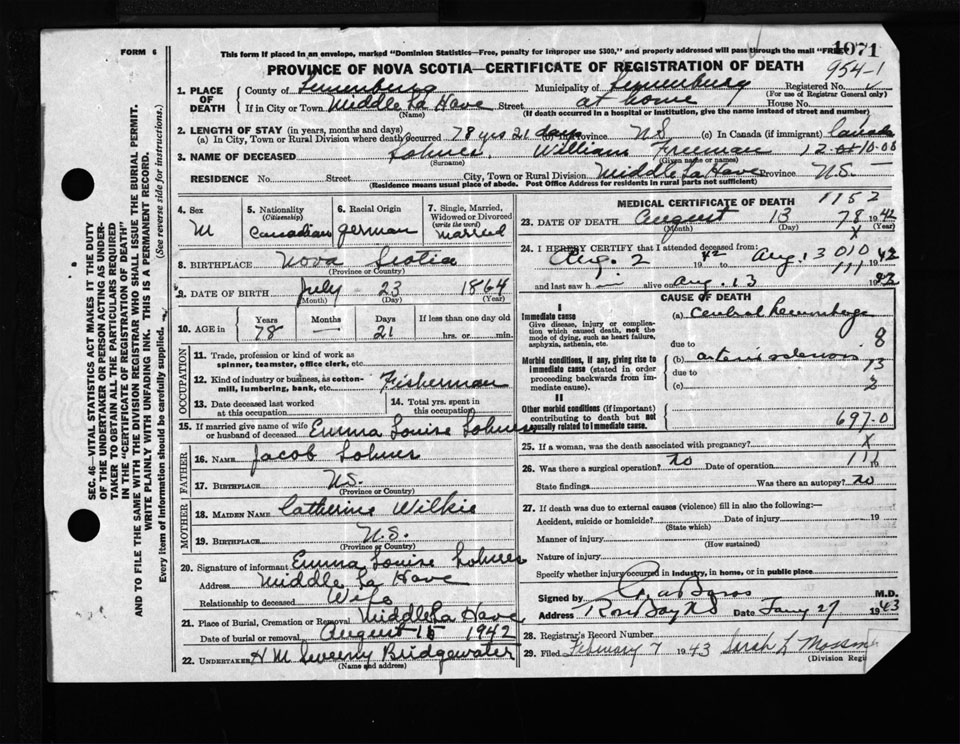 FORM 6
This form if placed in an envelope, marked "Dominion Statistics—Free, penalty for improper use $300," and properly addressed will pass through the mail "FREE"
1071
PROVINCE OF NOVA SCOTIA—CERTIFICATE OF REGISTRATION OF DEATH
954-1
1. PLACE OF DEATH
County of Lunenburg Municipality of Lunenburg Registered No.
(For use of Registrar General only)
If in City or Town Middle La Have Street at home House No.
(Name) (If death occurred in a hospital or institution, give its name instead of street and number)
2. LENGTH OF STAY (in years, months and days)
(a) In City, Town or Rural Division where death occurred 78 yrs 21 days (b) In Province N.S. (c) In Canada (if immigrant) Canada
3. NAME OF DECEASED Lohnes William Freeman
(Surname) (Given name or names)
RESIDENCE No. Street City, Town or Rural Division Middle La Have Province N.S.
(Residence means usual place of abode. Post Office Address for residents in rural parts not sufficient)
4. Sex M
5. Nationality (Citizenship) Canadian
6. Racial Origin German
7. Single, Married, Widowed or Divorced (write the word) Married
8. BIRTHPLACE Nova Scotia
(Province or Country)
9. DATE OF BIRTH July 23 1864
(Month) (Day) (Year)
10. AGE in Years Months Days If less than one day old
78 — 21 hrs. or min.
OCCUPATION
11. Trade, profession or kind of work as spinner, teamster, office clerk, etc.
12. Kind of industry or business, as cotton-mill, lumbering, bank, etc. Fisherman
13. Date deceased last worked at this occupation
14. Total yrs. spent in this occupation
15. If married give name of wife or husband of deceased Emma Louise Lohnes
FATHER
16. NAME Jacob Lohnes
17. BIRTHPLACE N.S.
(Province or Country)
MOTHER
18. MAIDEN NAME Catherine Wilkie
19. BIRTHPLACE N.S.
(Province or Country)
20. Signature of informant Emma Louise Lohnes
Address Middle La Have
Relationship to deceased Wife
21. Place of Burial, Cremation or Removal Middle La Have
Date of burial or removal August 15 1942
22. UNDERTAKER H M Sweeny Bridgewater
(Name and address)
MEDICAL CERTIFICATE OF DEATH 1152
23. DATE OF DEATH August 13 78 1942
(Month) (Day) (Year)
24. I HEREBY CERTIFY that I attended deceased from:
Aug. 2 1942 to Aug. 13 010 1942
and last saw h alive on Aug. 13 111 1942
CAUSE OF DEATH
I
Immediate cause
Give disease, injury or complication which caused death, not the mode of dying, such as heart failure, asphyxia, asthenia, etc.
(a) Cerebral Hemorrhage
due to 8
Morbid conditions, if any, giving rise to immediate cause (stated in order proceeding backwards from immediate cause).
(b) arterio sclerosis
due to 13
(c) 2
II
Other morbid conditions (if important) contributing to death but not causally related to immediate cause.
697.0
25. If a woman, was the death associated with pregnancy? X
26. Was there a surgical operation? No Date of operation 111 19
State findings Was there an autopsy? no
27. If death was due to external causes (violence) fill in also the following:—
Accident, suicide or homicide? Date of injury 19
(State which)
Manner of injury
(How sustained)
Nature of injury
Specify whether injury occurred in industry, in home, or in public place
Signed by M.D.
Address Rose Bay NS Date Jany 27 1943
28. Registrar's Record Number
29. Filed February 7 1943 Sarah L
(Division Regi
SEC. 46—VITAL STATISTICS ACT MAKES IT THE DUTY
OF THE UNDERTAKER OR PERSON ACTING AS UNDERTAKER
TO OBTAIN ALL THE PARTICULARS REQUIRED
IN THE "CERTIFICATE OF REGISTRATION OF DEATH"
AND TO FILE THE SAME WITH THE DIVISION REGISTRAR WHO SHALL ISSUE THE BURIAL PERMIT.
WRITE PLAINLY WITH UNFADING INK. THIS IS A PERMANENT RECORD.
Every item of information should be carefully supplied. (See reverse side for instructions.)